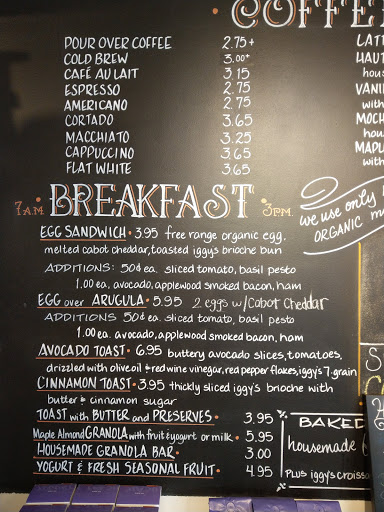 COFFEE
POUR OVER COFFEE 2.75+
COLD BREW 3.00+
CAFÉ AU LAIT 3.15
ESPRESSO 2.75
AMERICANO 2.75
CORTADO 3.65
MACCHIATO 3.25
CAPPUCCINO 3.65
FLAT WHITE 3.65
LATT
HAUT
hous
VANI
with
MOCH
hous
MAPL
with
7 A.M. • BREAKFAST • 3 P.M.
we use only
ORGANIC m
EGG SANDWICH • 3.95 free range organic egg,
melted cabot cheddar, toasted iggy's brioche bun
ADDITIONS: 50¢ ea. sliced tomato, basil pesto
1.00 ea. avocado, applewood smoked bacon, ham
EGG over ARUGULA • 5.95 2 eggs w/Cabot Cheddar
ADDITIONS 50¢ ea. sliced tomato, basil pesto
1.00 ea. avocado, applewood smoked bacon, ham
AVOCADO TOAST • 6.95 buttery avocado slices, tomatoes,
drizzled with olive oil & red wine vinegar, red pepper flakes, iggy's 7.grain
CINNAMON TOAST • 3.95 thickly sliced iggy's brioche with
butter & cinnamon sugar
TOAST with BUTTER and PRESERVES • 3.95
Maple Almond GRANOLA with fruit & yogurt or milk • 5.95
HOUSEMADE GRANOLA BAR • 3.00
YOGURT & FRESH SEASONAL FRUIT • 4.95
BAKED
housemade
PLUS iggy's croissa